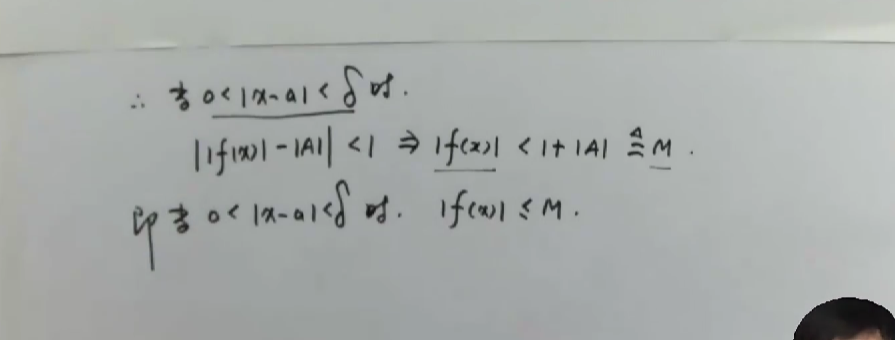 ∴ 当 0<|x-a|<δ 时.
||f(x)|-|A||<1 ⇒ |f(x)|<1+|A| ≜ M.
即当 0<|x-a|<δ 时. |f(x)|≤M.